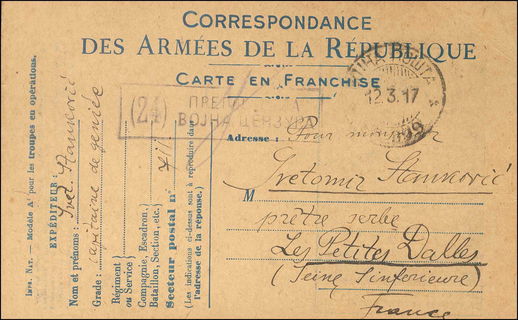 CORRESPONDANCE
DES ARMÉES DE LA RÉPUBLIQUE
CARTE EN FRANCHISE
12.3.17
(24)
ВОЈНА ЦЕНЗУРА
Adresse: Pour monsieur
M Svetomir Stanković
prêtre serbe
Les Petites Dalles
(Seine Inferieure)
France
Imp. Nat. — Modèle A¹ pour les troupes en opérations.
EXPÉDITEUR:
Nom et prénoms: Svet. Stanković
Grade: Capitaine de genie
Régiment)
ou Service)
Compagnie, Escadron,
Bataillon, Section, etc.)
Secteur postal n°
(Les indications ci-dessus sont à reproduire dans
l'adresse de la réponse.)